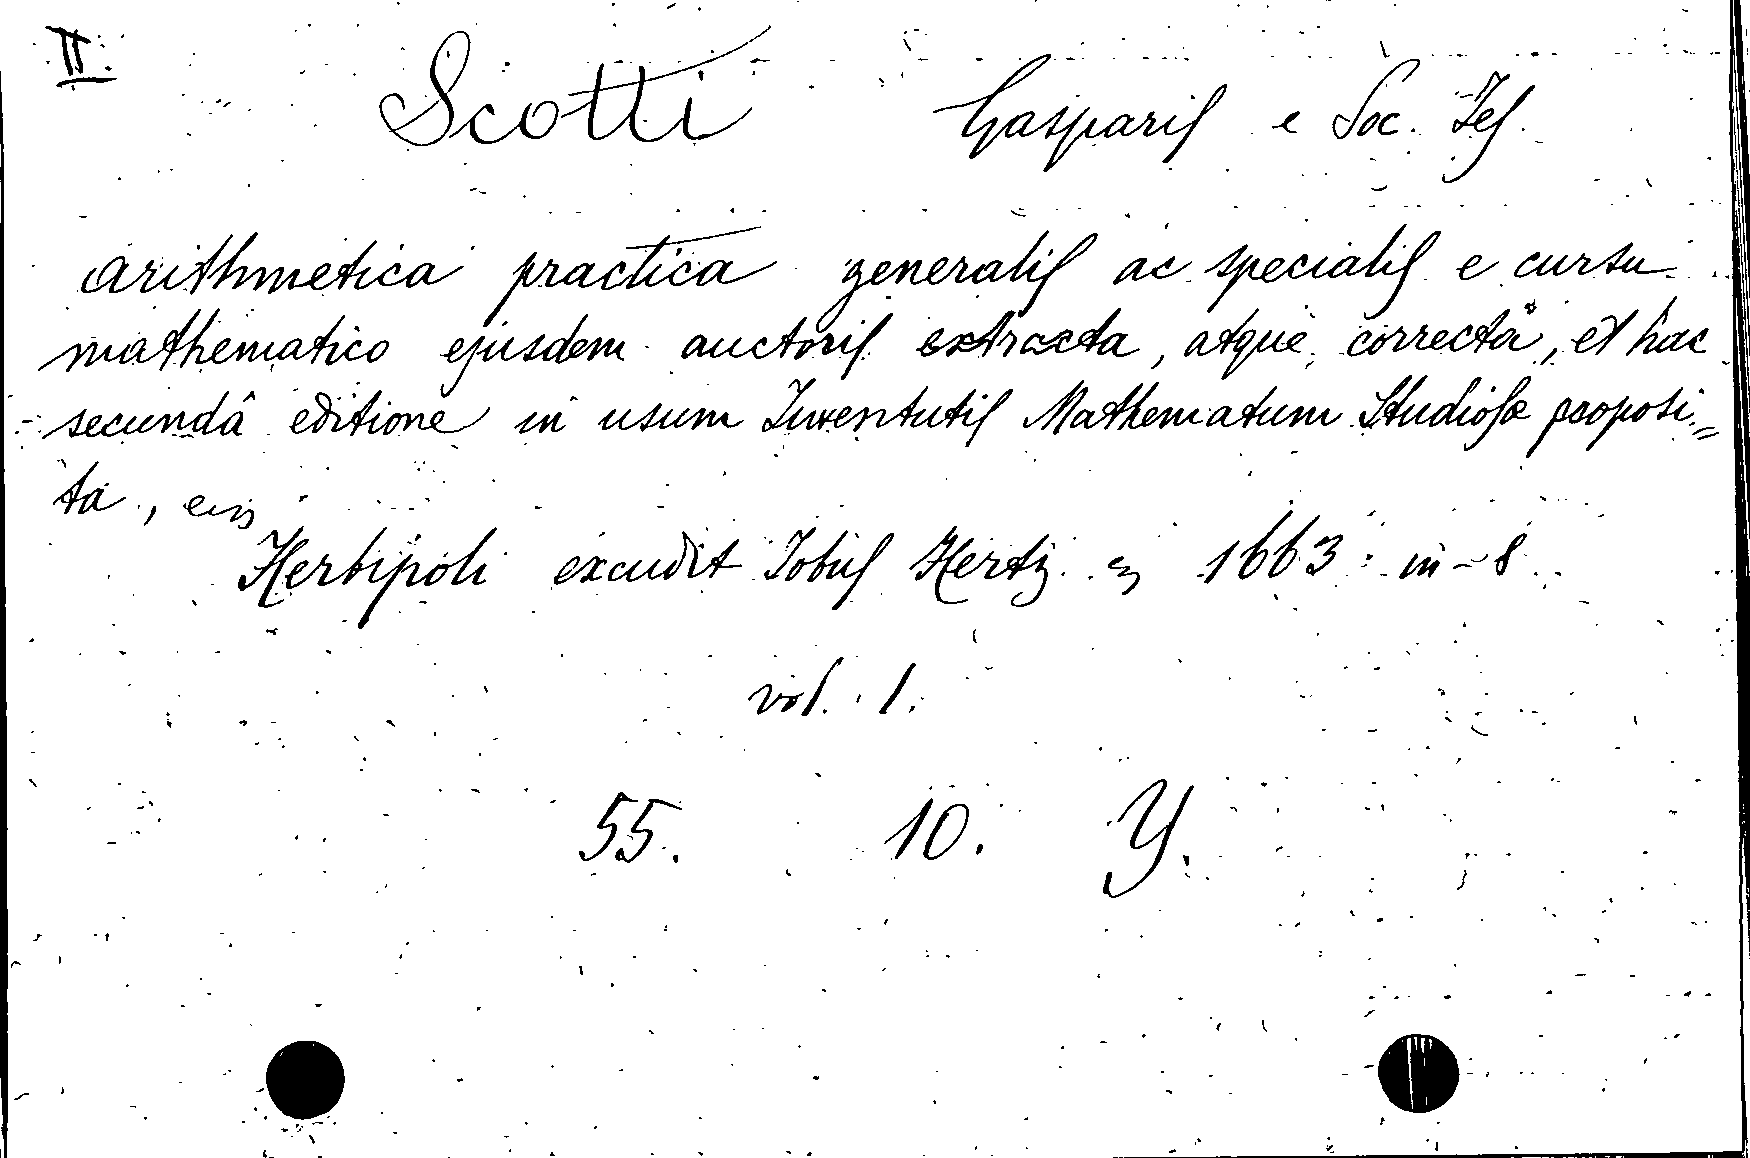 II.
Scotti Gasparis e Soc. Jes.
Arithmetica practica generalis ac specialis e cursu
mathematico ejusdem auctoris extracta, atque correcta, et hac
secundâ editione in usum Juventutis Mathematum Studiosæ proposi=
ta,
Herbipoli excudit Jobus Hertz 1663. in-8.
vol. 1.
55. 10. Y.